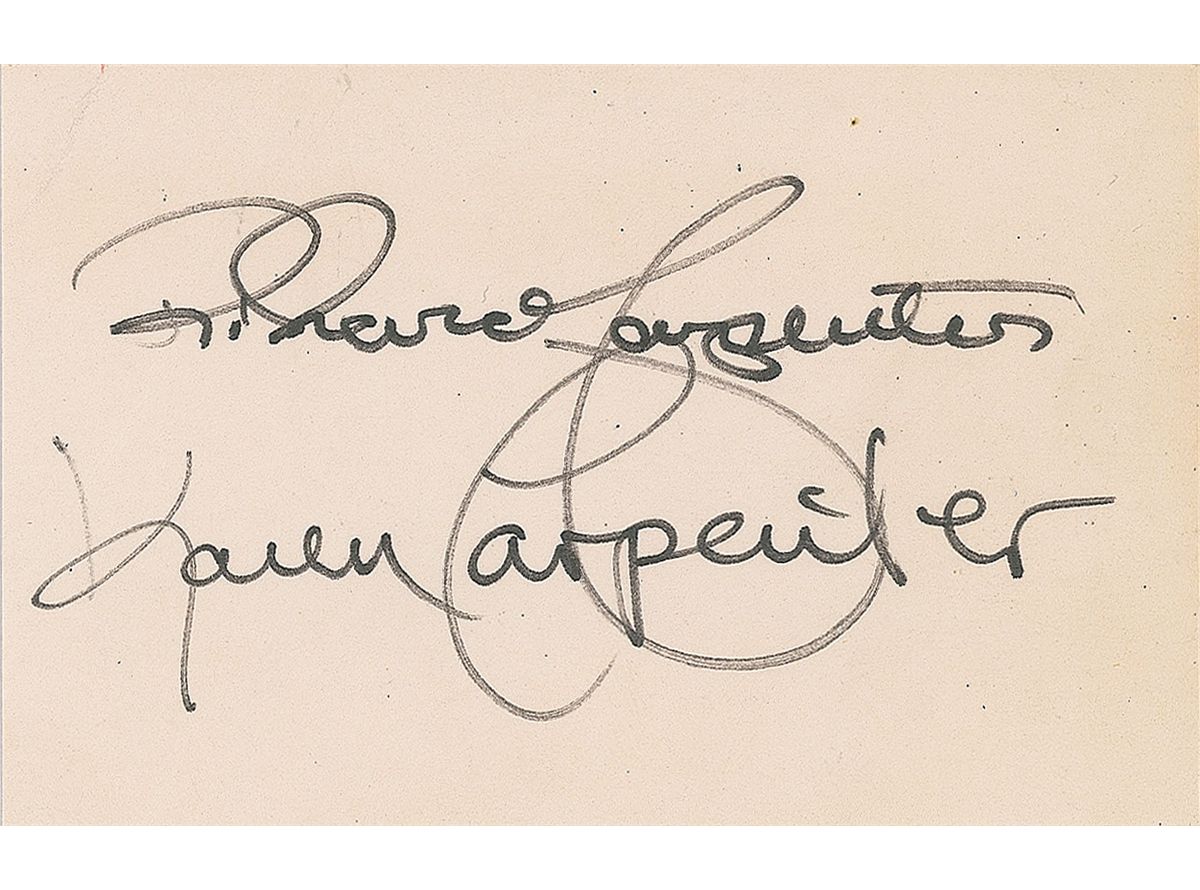 Richard Carpenter
Karen Carpenter